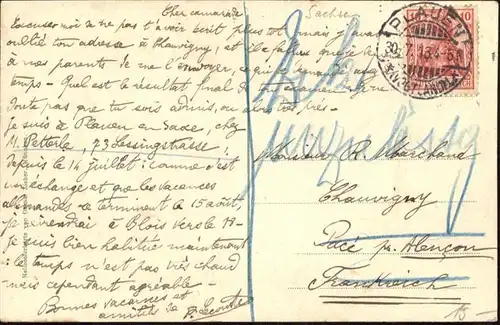 Cher camarade
Excuser moi de ne pas t'avoir écrit plus tôt mais j'avais
oublié ton adresse à Chauvigny, et il a fallu que je
à mes parents de me l'envoyer, ce qui
temps - Quel est le résultat final de
doute pas que tu sois admis, ou alors très près -
Je suis à Plauen en Saxe, chez
M. Petterle, 73 Lessingstrasse,
depuis le 14 juillet: comme c'est
un échange et que les vacances
allemandes se terminent le 15 août,
je reviendrai à Blois vers le 17 -
Je suis bien habitué maintenant
le temps n'est pas très chaud
mais cependant agréable -
Bonnes vacances et
amitiés de
Sachsen
PLAUEN
30.7.13.4-5N
10
Monsieur R. Marchand
Chauvigny
Pacé pr. Alençon
Frankreich
15 -